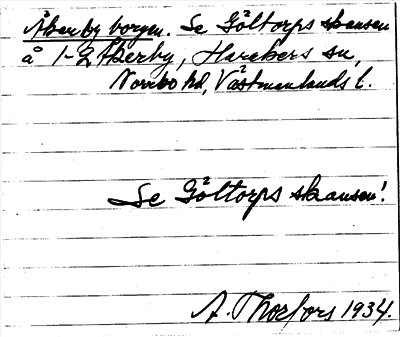 Åkerby borgen. Se Gåltorps skansen
å 1-2 Åkerby, Harakers sn,
Norrbo hd, Västmanlands l.
Se Gåltorps skansen!
A. Thorfors 1934.